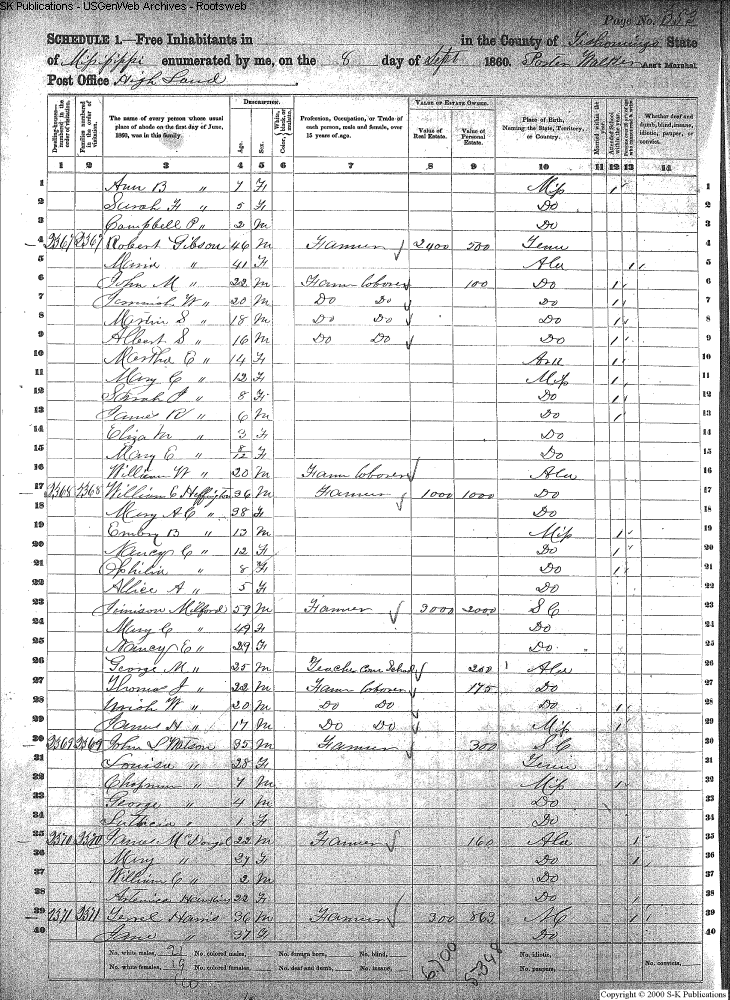 SK Publications - USGenWeb Archives - Rootsweb
Page No.
SCHEDULE 1.—Free Inhabitants in in the County of Tishomingo State
of Mississippi enumerated by me, on the 8 day of Sept 1860. Walker Ass't Marshal
Post Office High Land
Dwelling-houses—numbered in the order of visitation.
Families numbered in the order of visitation.
The name of every person whose usual place of abode on the first day of June, 1860, was in this family.
DESCRIPTION.
Age.
Sex.
Color, White, black, or mulatto.
Profession, Occupation, or Trade of each person, male and female, over 15 years of age.
VALUE OF ESTATE OWNED.
Value of Real Estate.
Value of Personal Estate.
Place of Birth, Naming the State, Territory, or Country.
Married within the year.
Attended School within the year.
Whether deaf and dumb, blind, insane, idiotic, pauper, or convict.
1 2 3 4 5 6 7 8 9 10 11 12 13 14
1 Ann B " 7 F Miss / 1
2 Sarah F " 5 F Do 2
3 Campbell P " 2 M Do 3
4 2367 2367 Robert Gibson 46 M Farmer 2400 500 Tenn 4
5 Maria " 41 F Ala / 5
6 John M " 22 M Farm laborer 100 Do / 6
7 W " 20 M Do Do Do / 7
8 Martin S " 18 M Do Do Do / 8
9 Albert S " 16 M Do Do Do / 9
10 Martha E " 14 F Ark / 10
11 Mary C " 12 F Miss / 11
12 Sarah J " 8 F Do / 12
13 James R " 6 M Do / 13
14 Eliza M " 3 F Do 14
15 Mary E " 8/12 F Do 15
16 William W " 20 M Farm laborer Ala 16
17 2368 2368 William C Heffington 36 M Farmer 1000 1000 Do 17
18 Mary A C " 38 F Do 18
19 Embry B " 13 M Miss / 19
20 Nancy C " 12 F Do / 20
21 " 8 F Do / 21
22 Allice A " 5 F Do 22
23 Milford 59 M Farmer 3000 2000 S C 23
24 Mary C " 49 F Do 24
25 Nancy E " 29 F Do 25
26 George M " 25 M Teacher Com School 200 Ala 26
27 Thomas J " 22 M Farm laborer 175 Do 27
28 Uriah W " 20 M Do Do Do / 28
29 James H " 17 M Do Do Miss / 29
30 2369 2369 John S Watson 35 M Farmer 300 S C 30
31 Louisa " 28 F Tenn 31
32 Chapman " 7 M Miss / 32
33 George " 4 M Do 33
34 " 1 F Do 34
35 2370 2370 James McDougal 22 M Farmer 160 Ala / 35
36 Mary " 27 F Do / 36
37 William C " 2 M Do 37
38 Hawkins 22 F Do / 38
39 2371 2371 Harris 36 M Farmer 300 863 N C / 39
40 Jane " 37 F Do 40
No. white males, 21 No. colored males, No. foreign born, No. blind, 6700 5348 No. idiotic,
No. white females, 19 No. colored females, No. deaf and dumb, No. insane, No. paupers, No. convicts,
Copyright © 2000 S-K Publications